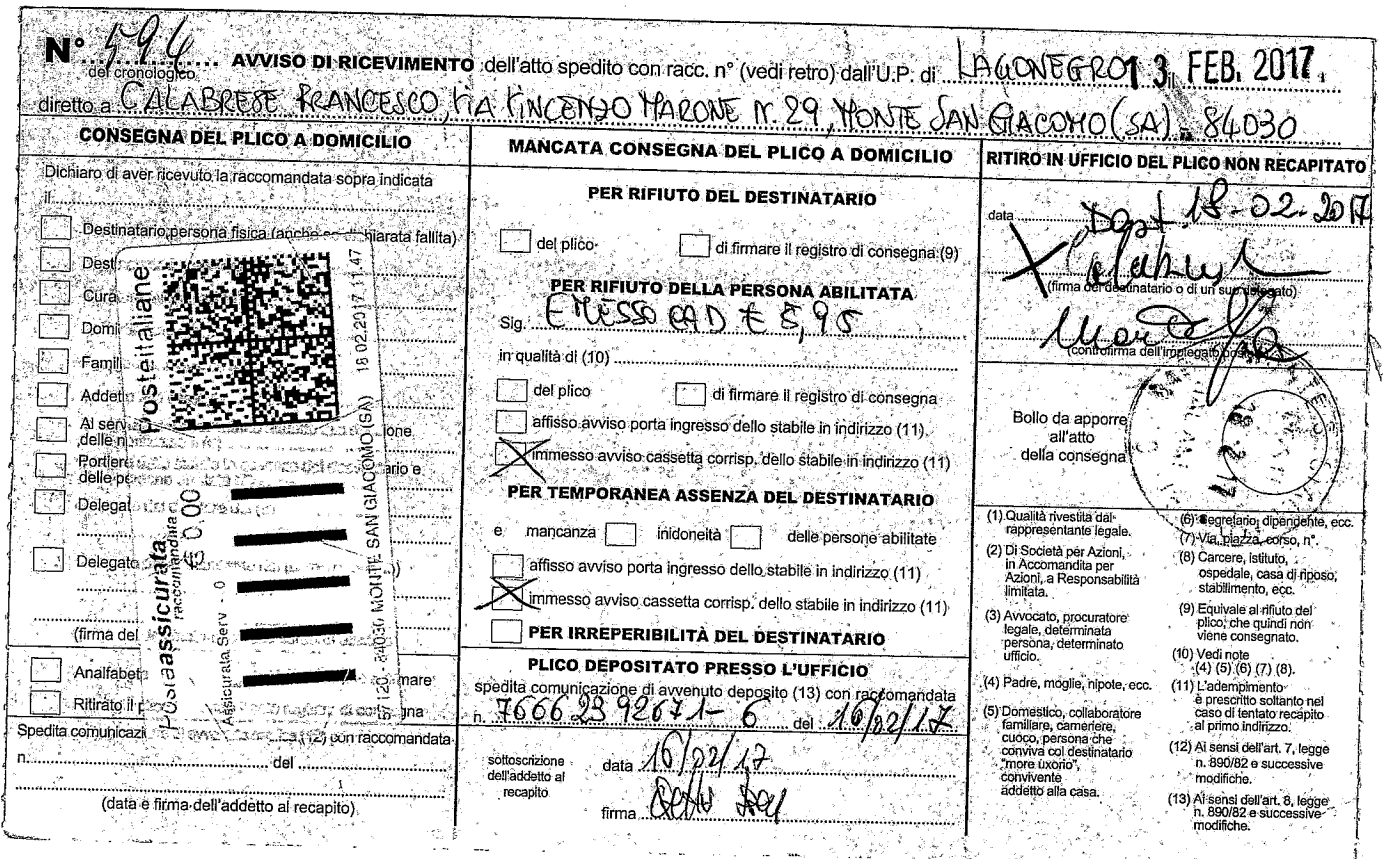 N° 594 AVVISO DI RICEVIMENTO dell'atto spedito con racc. n° (vedi retro) dall'U.P. di LAGONEGRO 13. FEB. 2017
del cronologico
diretto a CALABRESE FRANCESCO, VIA VINCENZO MARONE N. 29, MONTE SAN GIACOMO (SA) - 84030
CONSEGNA DEL PLICO A DOMICILIO
Dichiaro di aver ricevuto la raccomandata sopra indicata
il
Destinatario persona fisica (anche se dichiarata fallita)
Dest
Cura
Domi
Famili
Addetto
Al serv
delle
ione
Portiere
delle pe
ario e
Delegat
Delegato
(firma del
Analfabeta
mare
Ritirato il
Spedita comunicazi (12) con raccomandata
n. del
(data e firma dell'addetto al recapito)
Posteitaliane
18.02.2017 11.47
Postaassicurata
raccomandata
€ 0,00
Assicurata Serv - 0
57120 - 84030 MONTE SAN GIACOMO (SA)
MANCATA CONSEGNA DEL PLICO A DOMICILIO
PER RIFIUTO DEL DESTINATARIO
del plico
di firmare il registro di consegna (9)
PER RIFIUTO DELLA PERSONA ABILITATA
Sig. EMESSO CAD € 5,95
in qualità di (10)
del plico
di firmare il registro di consegna
affisso avviso porta ingresso dello stabile in indirizzo (11)
immesso avviso cassetta corrisp. dello stabile in indirizzo (11)
PER TEMPORANEA ASSENZA DEL DESTINATARIO
e mancanza inidoneità delle persone abilitate
affisso avviso porta ingresso dello stabile in indirizzo (11)
immesso avviso cassetta corrisp. dello stabile in indirizzo (11)
PER IRREPERIBILITÀ DEL DESTINATARIO
PLICO DEPOSITATO PRESSO L'UFFICIO
spedita comunicazione di avvenuto deposito (13) con raccomandata
n. 7666 23 92671-6 del 16/02/17
sottoscrizione
dell'addetto al
recapito
data 16/02/17
firma
RITIRO IN UFFICIO DEL PLICO NON RECAPITATO
data 18-02-2017
(firma del destinatario o di un suo delegato)
(controfirma dell'impiegato postale)
Bollo da apporre
all'atto
della consegna
(1) Qualità rivestita dal
rappresentante legale.
(2) Di Società per Azioni,
in Accomandita per
Azioni, a Responsabilità
limitata.
(3) Avvocato, procuratore
legale, determinata
persona, determinato
ufficio.
(4) Padre, moglie, nipote, ecc.
(5) Domestico, collaboratore
familiare, cameriere,
cuoco, persona che
conviva col destinatario
"more uxorio",
convivente
addetto alla casa.
(6) Segretario, dipendente, ecc.
(7) Via, piazza, corso, n°.
(8) Carcere, istituto,
ospedale, casa di riposo,
stabilimento, ecc.
(9) Equivale al rifiuto del
plico, che quindi non
viene consegnato.
(10) Vedi note
(4) (5) (6) (7) (8).
(11) L'adempimento
è prescritto soltanto nel
caso di tentato recapito
al primo indirizzo.
(12) Ai sensi dell'art. 7, legge
n. 890/82 e successive
modifiche.
(13) Ai sensi dell'art. 8, legge
n. 890/82 e successive
modifiche.